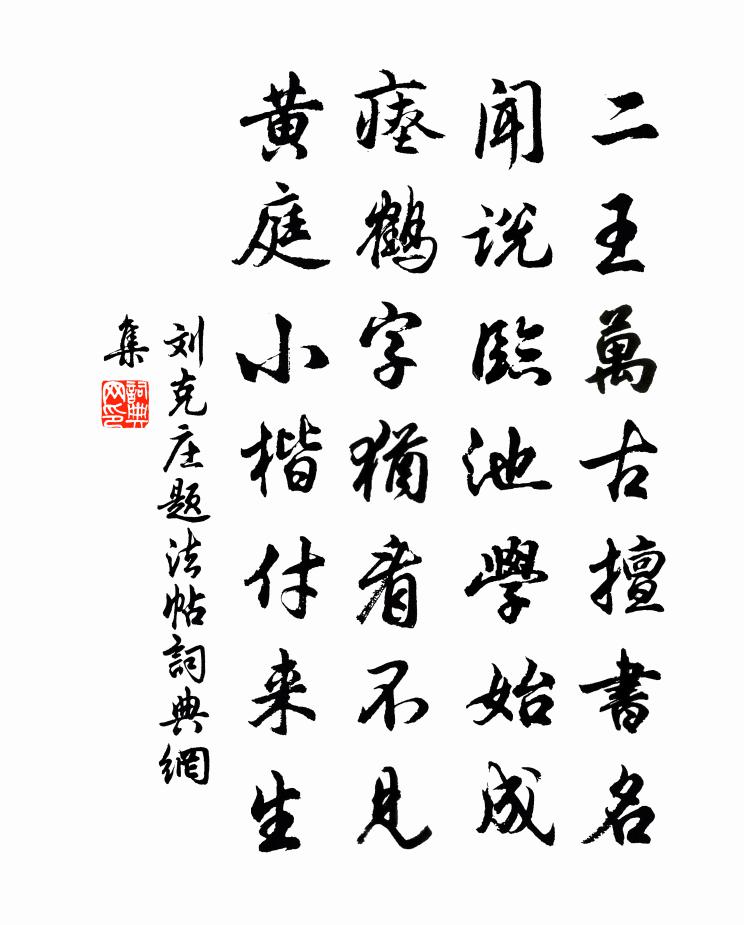 二王萬古擅書名
聞説臨池學始成
瘞鶴字猶看不見
黄庭小楷付来生
刘克庄题法帖詞典網
集
詞典網印